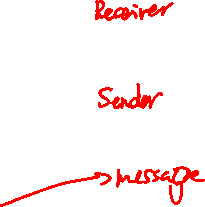 Receiver
Sender
message